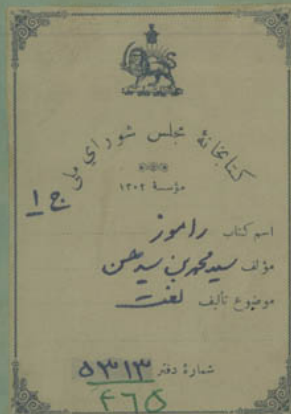 کتابخانهٔ مجلس شورای ملی
مؤسسهٔ ۱۳۰۲
ج ۱
اسم کتاب راموز
مؤلف سید محمد بن سید حسن
موضوع تألیف لغت
شمارهٔ دفتر ۵۳۱۳
۴۶۵